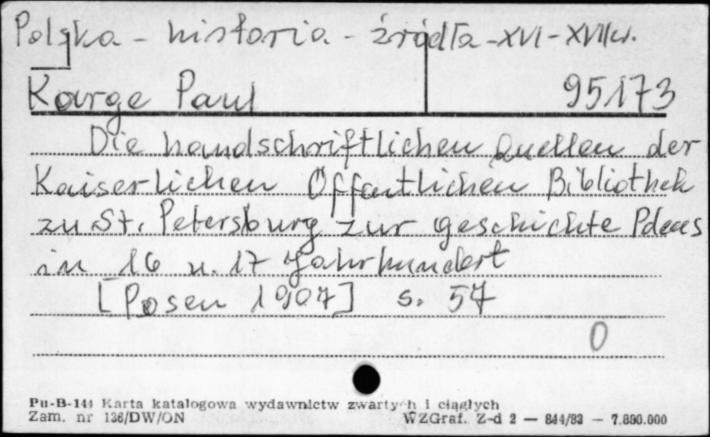 Polska - historia - źródła - XVI - XVII w.
Karge Paul 95173
Die handschriftlichen Quellen der
Kaiserlichen Öffentlichen Bibliothek
zu St. Petersburg zur geschichte Polens
im 16 u. 17 Jahrhundert
[Posen 1907] s. 57
0
Pu-B-141 Karta katalogowa wydawnictw zwartych i ciągłych
Zam. nr 136/DW/ON WZGraf. Z-d 2 — 844/83 — 7.800.000